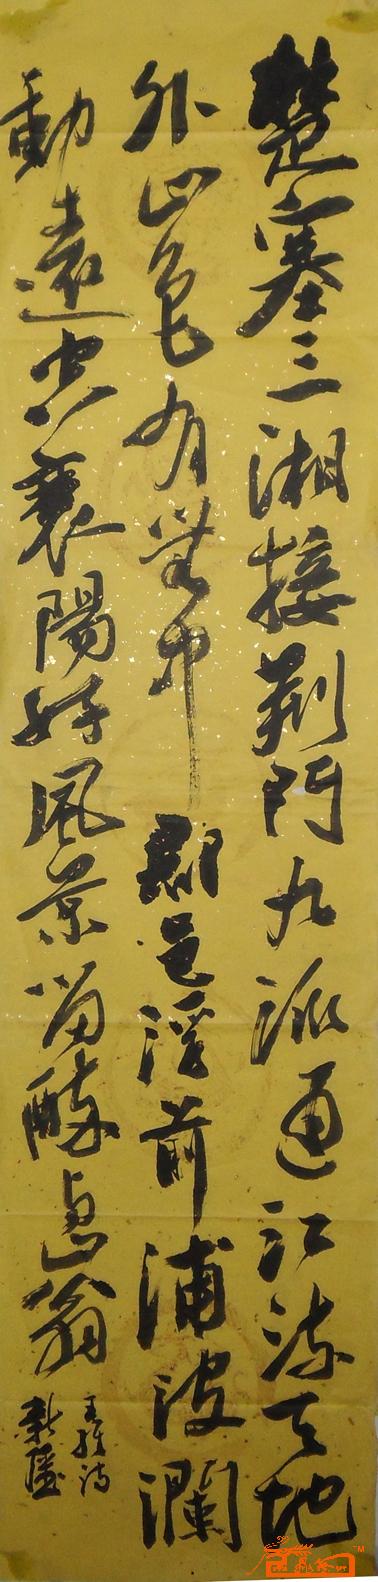 楚塞三湘接荆門九派通江流天地
外山色有無中郡邑浮前浦波瀾
動遠空襄陽好風景留醉与山翁
王維詩